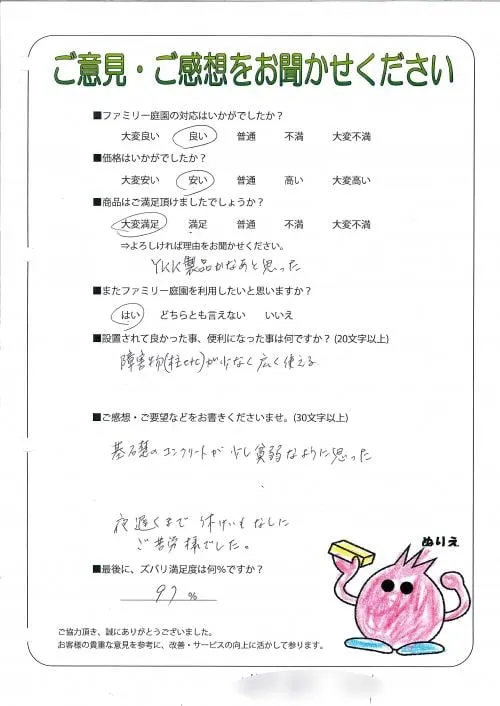 ご意見・ご感想をお聞かせください
■ファミリー庭園の対応はいかがでしたか?
大変良い 良い 普通 不満 大変不満
■価格はいかがでしたか?
大変安い 安い 普通 高い 大変高い
■商品はご満足頂けましたでしょうか?
大変満足 満足 普通 不満 大変不満
⇒よろしければ理由をお聞かせください。
YKK製品かなあと思った
■またファミリー庭園を利用したいと思いますか?
はい どちらとも言えない いいえ
■設置されて良かった事、便利になった事は何ですか? (20文字以上)
障害物(柱etc)が少なく広く使える
■ご感想・ご要望などをお書きくださいませ。(30文字以上)
基礎のコンクリートが少し貧弱なように思った
夜遅くまで休けいもなしに
ご苦労様でした。
ぬりえ
■最後に、ズバリ満足度は何%ですか?
97 %
ご協力頂き、誠にありがとうございました。
お客様の貴重な意見を参考に、改善・サービスの向上に活かして参ります。